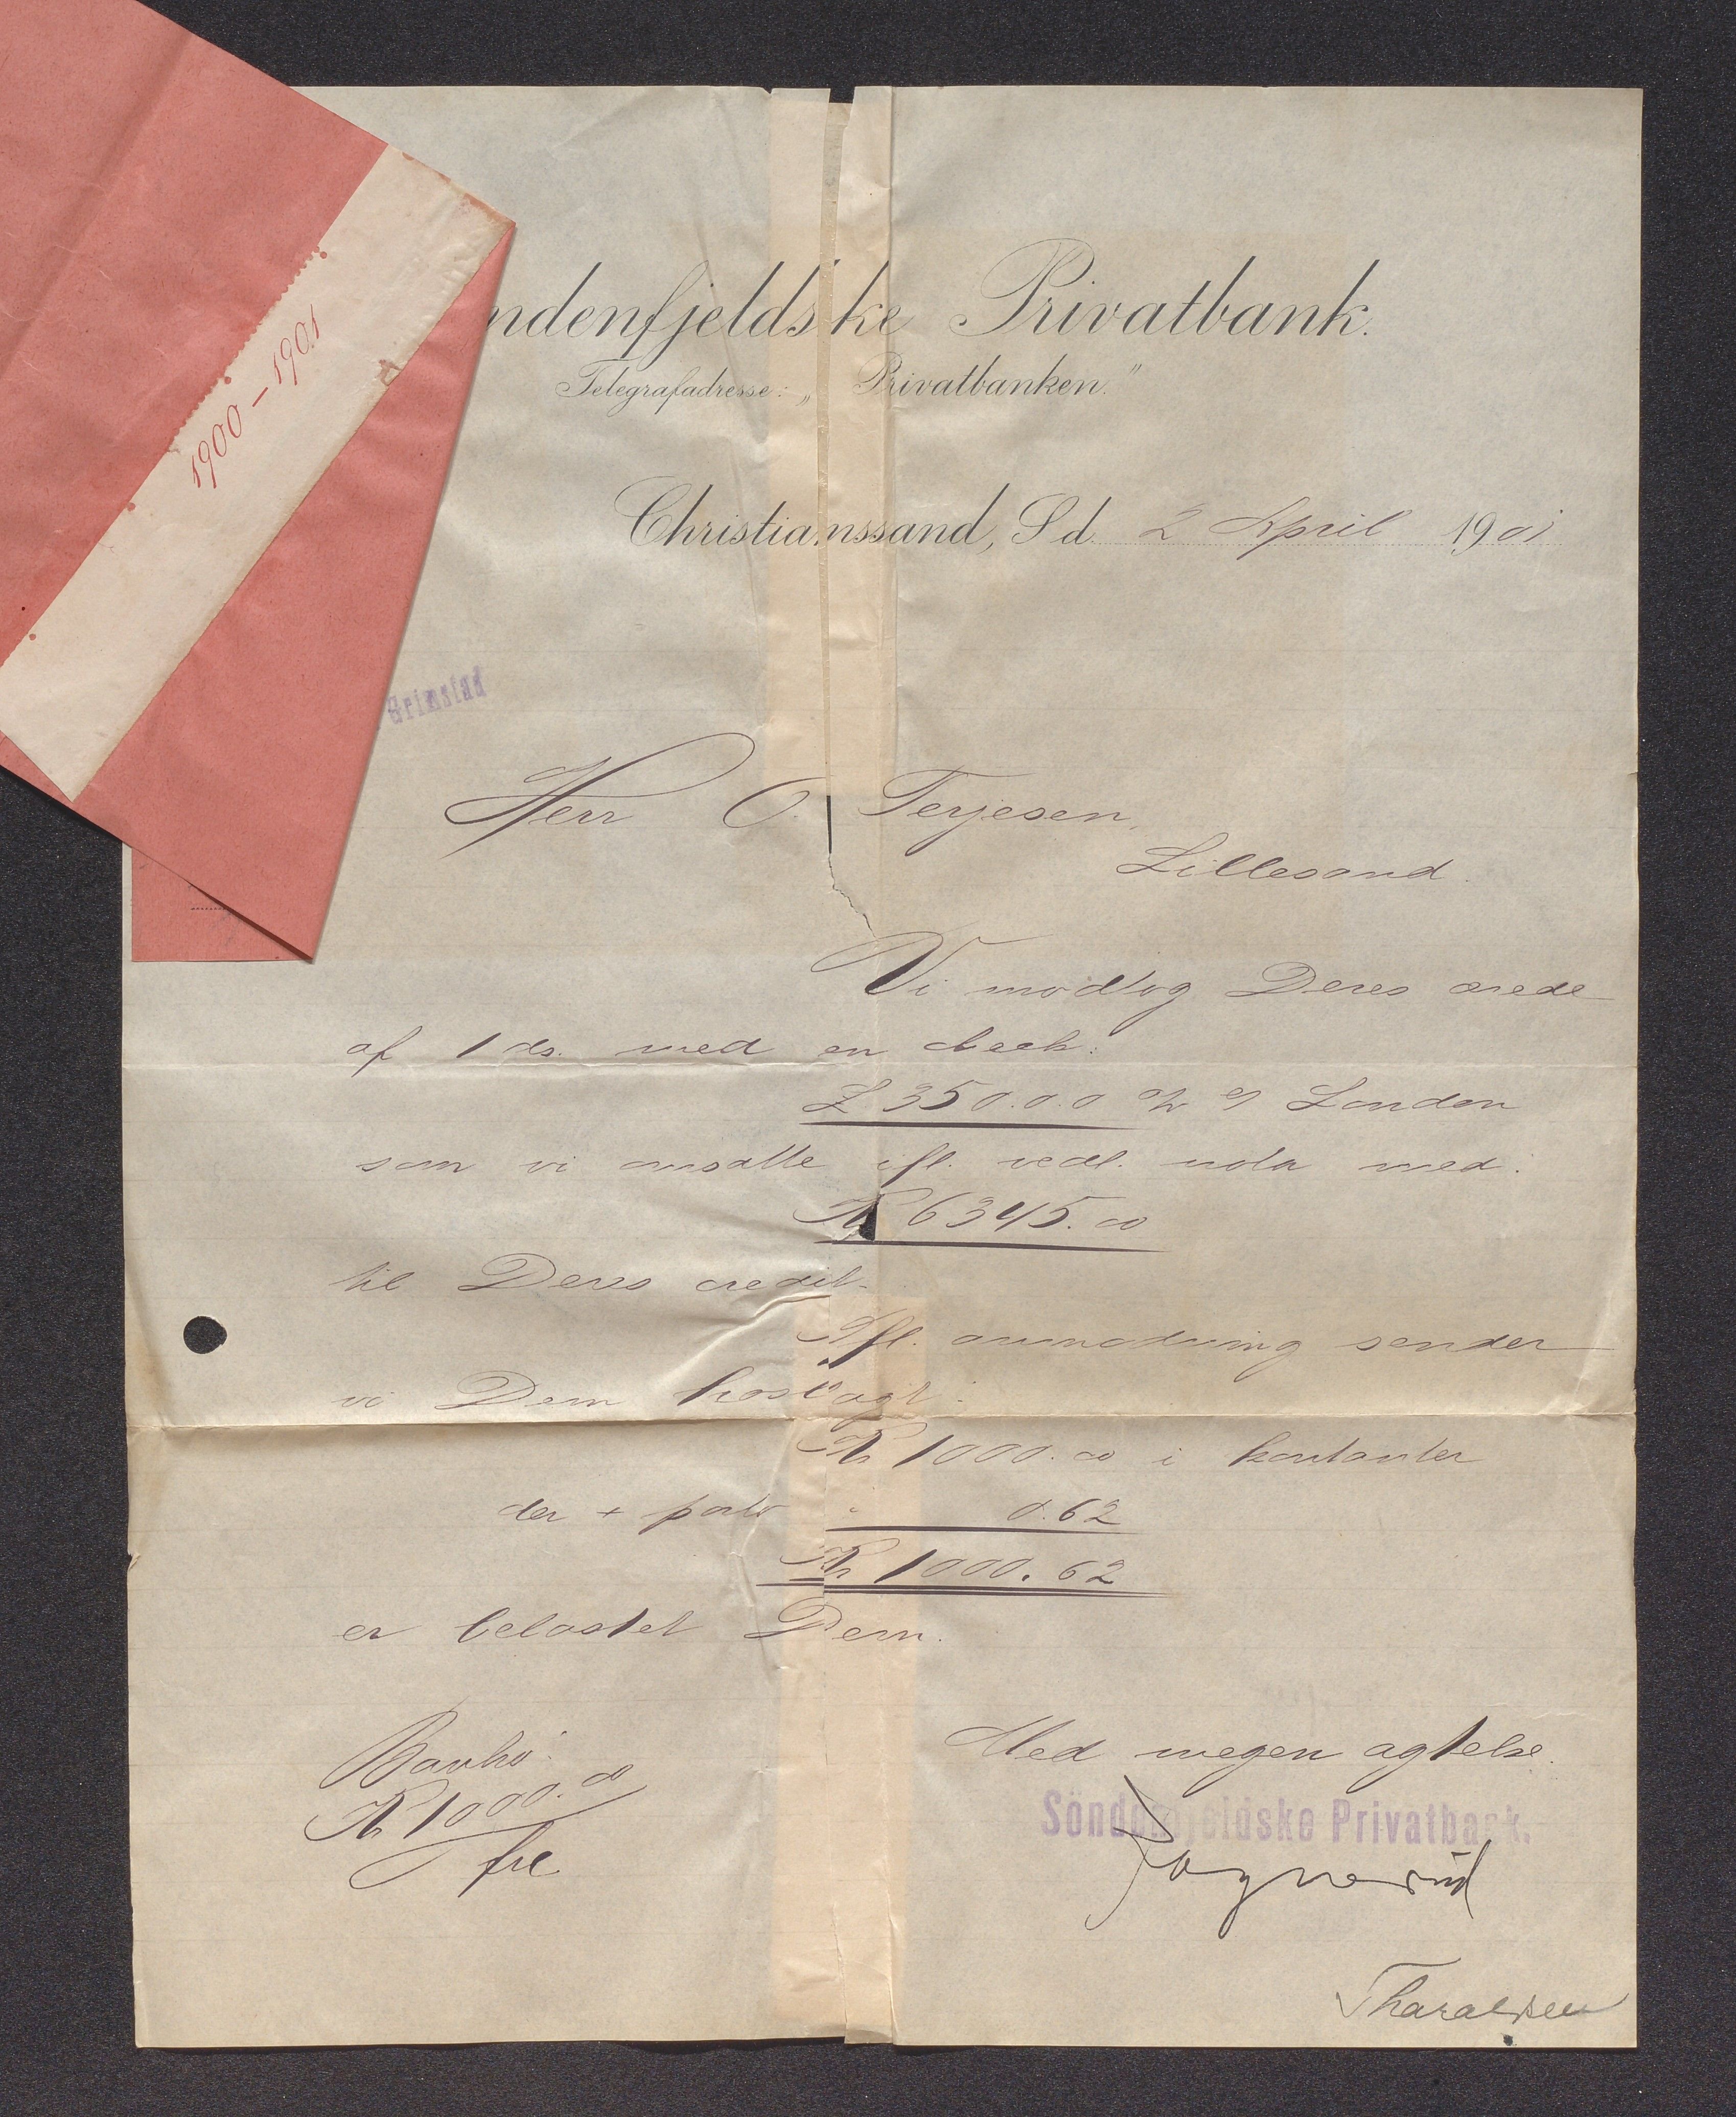 1900 – 1901
ndenfjeldske Privatbank.
Telegrafadresse: „Privatbanken."
Christianssand, S d. 2 April 1901
Grimstad
Herr O. Terjesen,
Lillesand.
Vi modtog Deres ærede
af 1 ds. med en check:
£ 350.0.0 London
som vi ansatte ifl. vedl. nota med:
Kr 6345.00
til Deres credit.
Ifl. anmodning sender
vi Dem hoslagt:
Kr 1000.00 i kontanter
der + porto " 0.62
Kr 1000.62
er belastet Dem.
Med megen agtelse.
Söndenfjeldske Privatbank.
Kr 1000.00
Tharaldsen